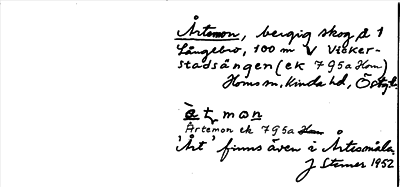 Årtemon, bergig skog å 1
Långebro, 100 m V Vicker-
stadsängen (ek 795a Hom)
Horns sn, Kinda hd, Östgl.
å t m o n
Årtemon ek 795a Hom
'Årt' finns även i Årtesmåla
J Sterner 1952